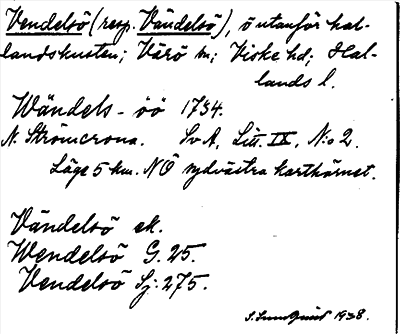 Vendelsö (resp. Vändelsö), ö utanför hal-
landskusten; Värö sn; Viske hd; Hal-
lands l.
Wändels-öö 1734.
N. Strömcrona. SvA, Litt. IX, N:o 2.
Läge 5 km. NÖ sydvästra karthörnet.
Vändelsö ek.
Wendelsö G. 25.
Vendelsö Sj. 275.
S. Sundquist 1938.